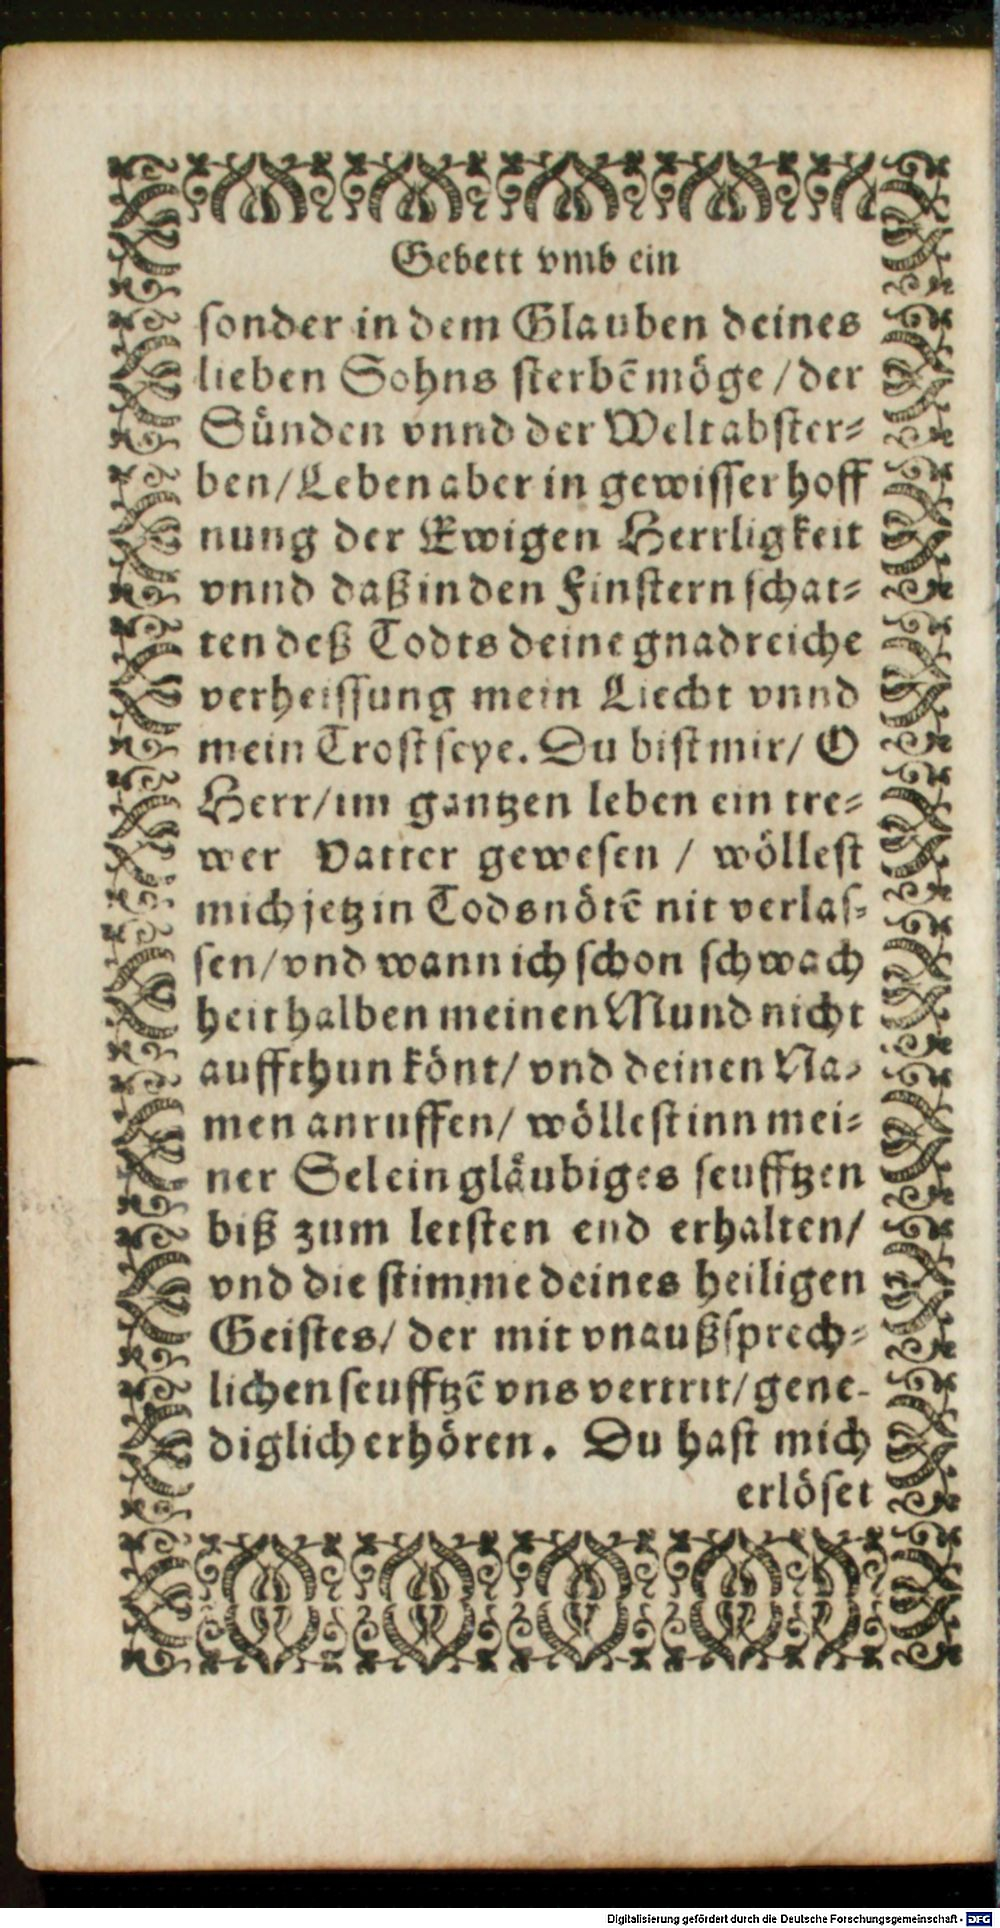 Gebett vmb ein
sonder in dem Glauben deines
lieben Sohns sterbē möge / der
Sünden vnnd der Welt abster-
ben / Leben aber in gewisser hoff
nung der Ewigen Herrligkeit
vnnd daß in den Finstern schat-
ten deß Todts deine gnadreiche
verheissung mein Liecht vnnd
mein Trost seye. Du bist mir / O
Herr / im gantzen leben ein tre-
wer Vatter gewesen / wöllest
mich jetz in Todsnötē nit verlas-
sen / vnd wann ich schon schwach
heit halben meinen Mund nicht
auffthun könt / vnd deinen Na-
men anruffen / wöllest inn mei-
ner Sel ein gläubiges seufftzen
biß zum letsten end erhalten /
vnd die stimme deines heiligen
Geistes / der mit vnaußsprech-
lichen seufftzē vns vertrit / gene-
diglich erhören. Du hast mich
erlöset
Digitalisierung gefördert durch die Deutsche Forschungsgemeinschaft - DFG